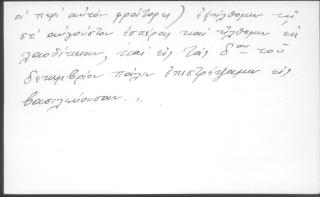 οἱ περὶ αὐτὸν φράτορες) ἐξήλθομεν τῇ
ϛʹ αὐγούστου ἑσπέρας καὶ ἤλθομεν εἰς
λαοδίκειαν, καὶ εἰς τὰς δʹ τοῦ
δεκεμβρίου πάλιν ἐπεστρέψαμεν εἰς
βασιλεύουσαν.